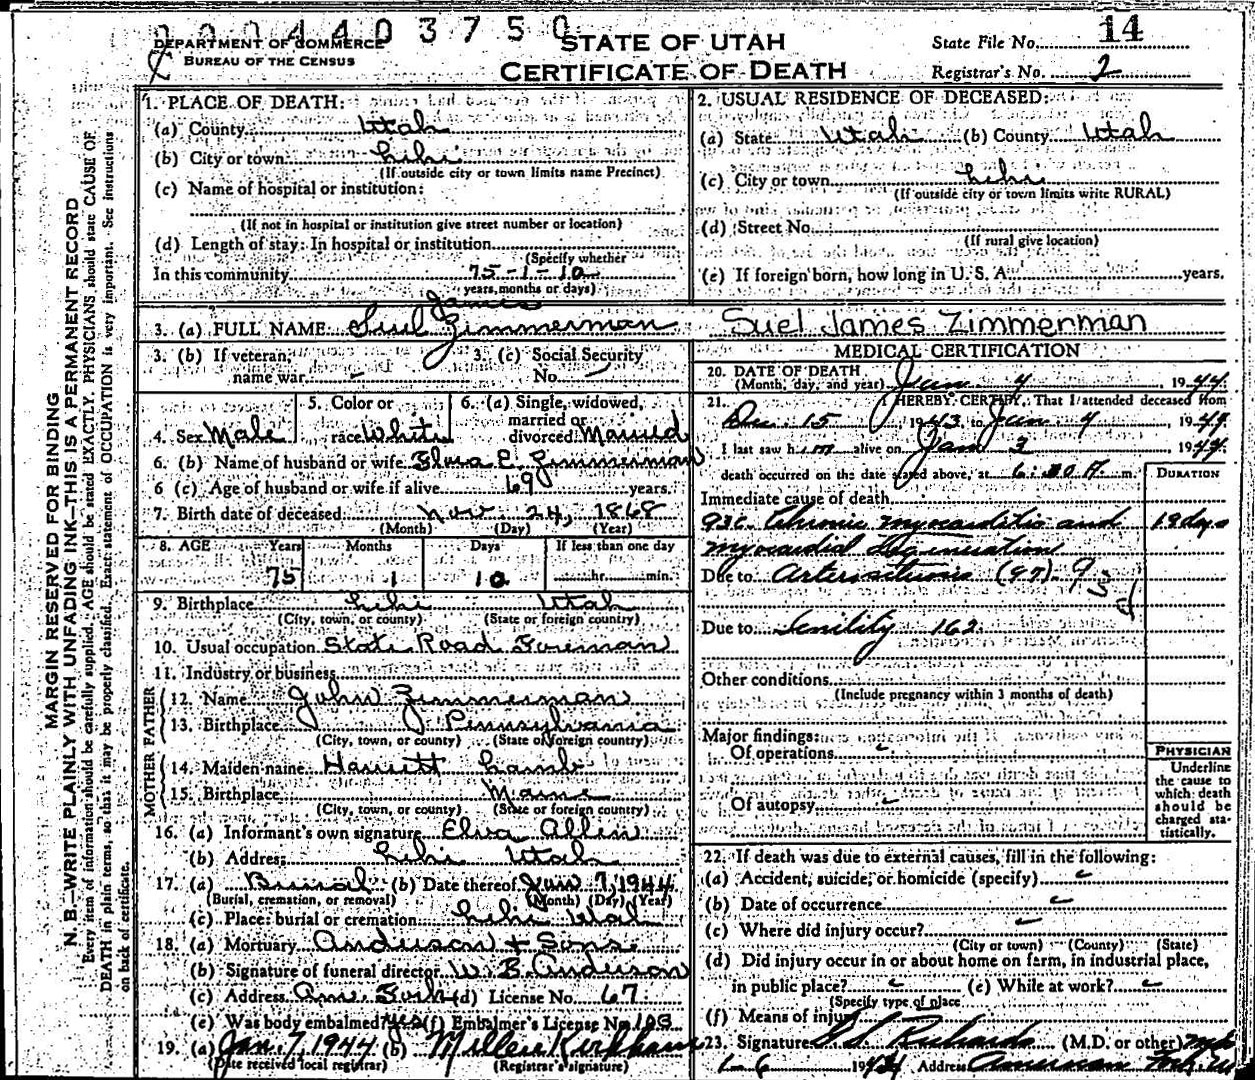 0004403750
DEPARTMENT OF COMMERCE
BUREAU OF THE CENSUS
STATE OF UTAH
CERTIFICATE OF DEATH
State File No. 14
Registrar's No. 2
MARGIN RESERVED FOR BINDING
N. B.—WRITE PLAINLY WITH UNFADING INK—THIS IS A PERMANENT RECORD
Every item of information should be carefully supplied. AGE should be stated EXACTLY. PHYSICIANS should state CAUSE OF
DEATH in plain terms, so that it may be properly classified. Exact statement of OCCUPATION is very important. See instructions
on back of certificate.
1. PLACE OF DEATH:
(a) County Utah
(b) City or town Lehi
(If outside city or town limits name Precinct)
(c) Name of hospital or institution:
(If not in hospital or institution give street number or location)
(d) Length of stay: In hospital or institution
(Specify whether
In this community 75-1-10
years, months or days)
2. USUAL RESIDENCE OF DECEASED:
(a) State Utah (b) County Utah
(c) City or town Lehi
(If outside city or town limits write RURAL)
(d) Street No.
(If rural give location)
(e) If foreign born, how long in U. S. A. years.
3. (a) FULL NAME Suel James Zimmerman
Suel James Zimmerman
3. (b) If veteran, name war -
3. (c) Social Security No. -
4. Sex Male
5. Color or race White
6. (a) Single, widowed, married or divorced Married
6. (b) Name of husband or wife Elva E. Zimmerman
6 (c) Age of husband or wife if alive 69 years.
7. Birth date of deceased Nov. 24, 1868
(Month) (Day) (Year)
8. AGE Years Months Days If less than one day
75 1 10 hr. min.
9. Birthplace Lehi Utah
(City, town, or county) (State or foreign country)
10. Usual occupation State Road Foreman
11. Industry or business
FATHER
12. Name John Zimmerman
13. Birthplace Pennsylvania
(City, town, or county) (State or foreign country)
MOTHER
14. Maiden name Harriett Lamb
15. Birthplace Maine
(City, town, or county) (State or foreign country)
16. (a) Informant's own signature Elva Allen
(b) Address Lehi Utah
17. (a) Burial (b) Date thereof Jan 7, 1944
(Burial, cremation, or removal) (Month) (Day) (Year)
(c) Place: burial or cremation Lehi Utah
18. (a) Mortuary Anderson & Sons
(b) Signature of funeral director W. B. Anderson
(c) Address Am. Fork (d) License No. 67
(e) Was body embalmed? yes (f) Embalmer's License No. 103
19. (a) Jan. 7, 1944 (b) Kirkham
(Date received local registrar) (Registrar's signature)
MEDICAL CERTIFICATION
20. DATE OF DEATH
(Month, day, and year) Jan 4, 1944
21. I HEREBY CERTIFY, That I attended deceased from
Dec 15 1943 to Jan 4, 1944
I last saw him alive on Jan 3 1944
death occurred on the date stated above, at 6:30 A. m.
DURATION
Immediate cause of death
93c Chronic myocarditis and 19 days
myocardial degeneration
Due to Arteriosclerosis (97) 93d
Due to Senility 162
Other conditions
(Include pregnancy within 3 months of death)
Major findings:
Of operations
Of autopsy
PHYSICIAN
Underline
the cause to
which death
should be
charged sta-
tistically.
22. If death was due to external causes, fill in the following:
(a) Accident, suicide, or homicide (specify)
(b) Date of occurrence
(c) Where did injury occur?
(City or town) (County) (State)
(d) Did injury occur in or about home on farm, in industrial place,
in public place? (e) While at work?
(Specify type of place
(f) Means of injury
23. Signature Richards (M.D. or other)
1-6 1944 Address American Fork, Ut